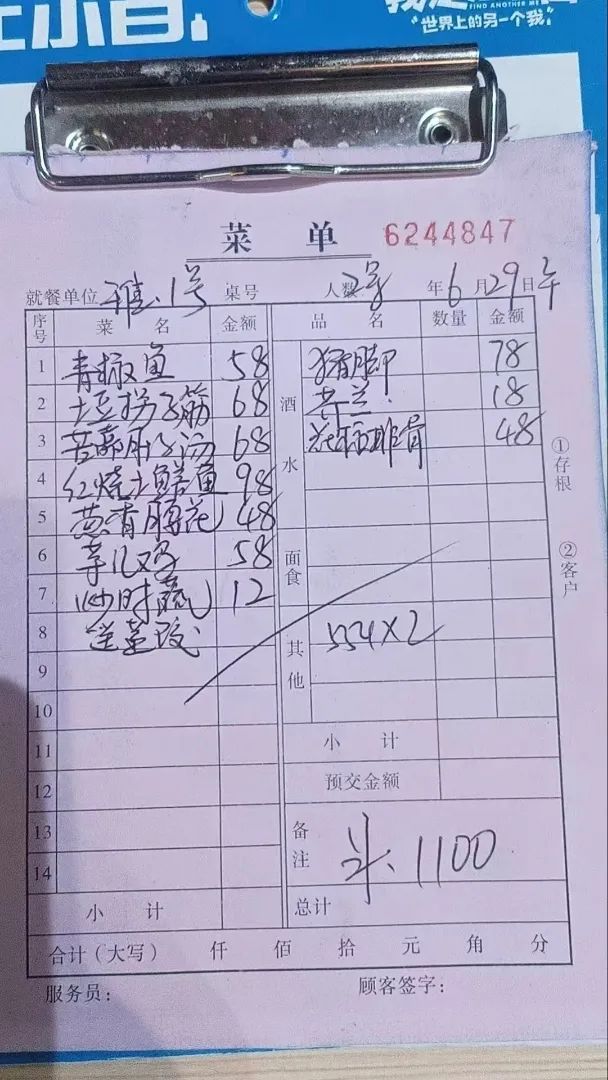 FIND ANOTHER ME
世界上的另一个我
菜 单 6244847
就餐单位 雅.1号 桌号 人数 2号 年6月29日午
序号 菜 名 金额 品 名 数量 金额
1 青椒鱼 58 酒水 猪脚 78
2 土豆拐子筋 68 芥兰 18
3 68 排骨 48
4 红烧土 鱼 98
5 葱香腰花 48
6 芋儿鸡 58 面食
7 炒时蔬 12
8 送 其他 554×2
9
10
11 小 计
12 预交金额
13 备注 1100
14
小 计 总计
合计(大写) 仟 佰 拾 元 角 分
服务员: 顾客签字:
①存根
②客户